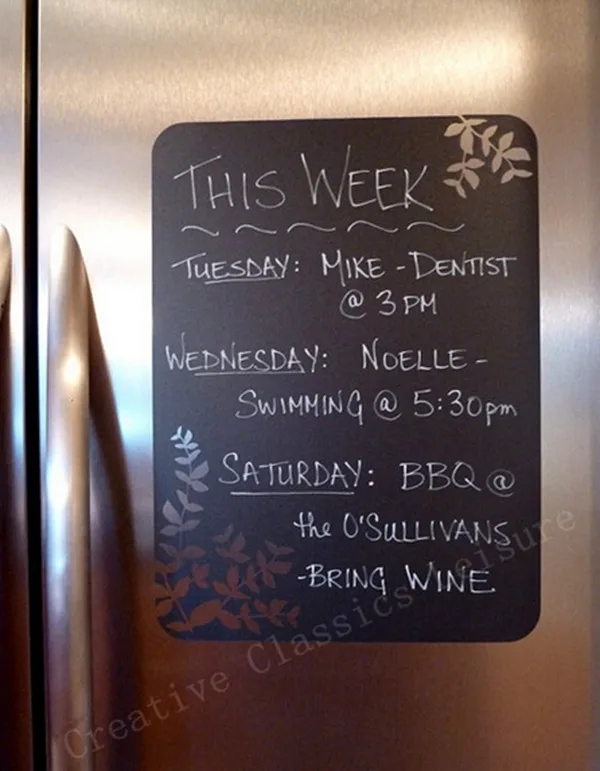 THIS WEEK
TUESDAY: MIKE - DENTIST
@ 3 PM
WEDNESDAY: NOELLE -
SWIMMING @ 5:30pm
SATURDAY: BBQ @
the O'SULLIVANS
-BRING WINE
Creative Classics Leisure